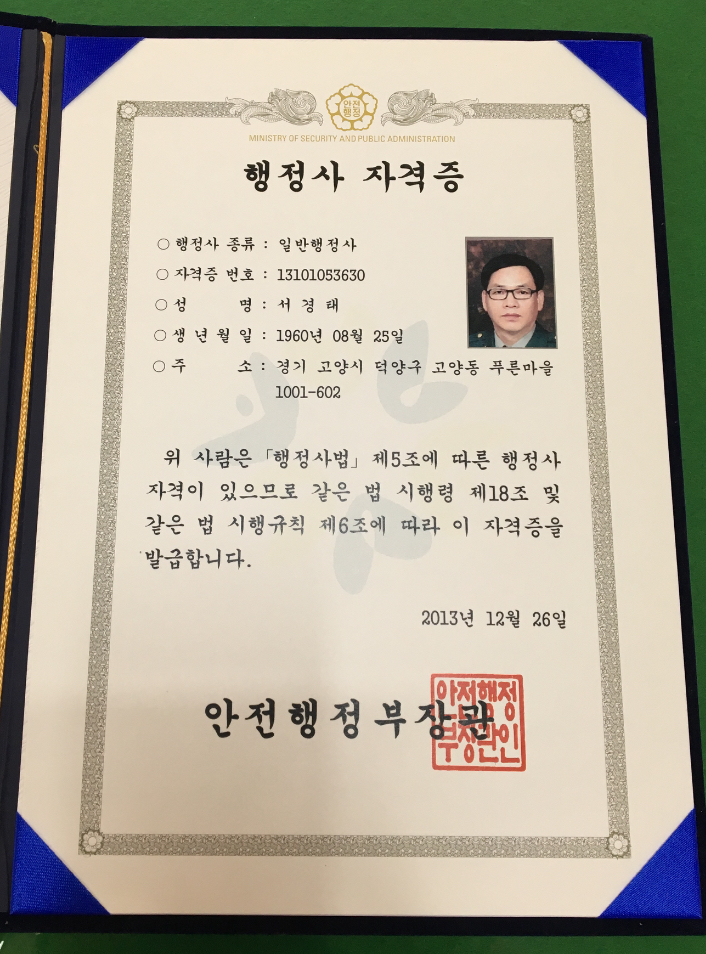 안전
행정
MINISTRY OF SECURITY AND PUBLIC ADMINISTRATION
행정사 자격증
○ 행정사 종류 : 일반행정사
○ 자격증 번호 : 13101053630
○ 성 명 : 서 경 태
○ 생 년 월 일 : 1960년 08월 25일
○ 주 소 : 경기 고양시 덕양구 고양동 푸른마을
1001-602
위 사람은 「행정사법」 제5조에 따른 행정사
자격이 있으므로 같은 법 시행령 제18조 및
같은 법 시행규칙 제6조에 따라 이 자격증을
발급합니다.
2013년 12월 26일
안전행정부장관
안전행정
부장관인